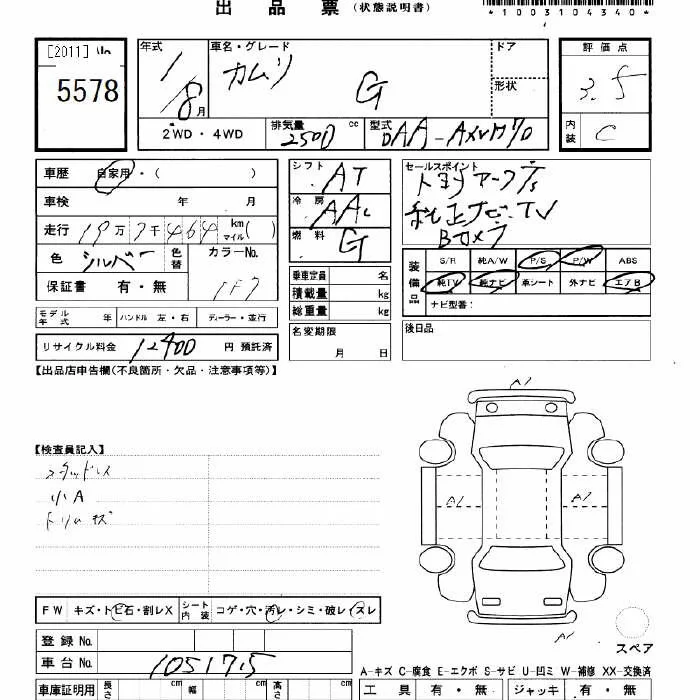 出品票(状態説明書)
*1003104340*
[2011]
5578
年式 1/8月
車名・グレード カムリ G
ドア
形状
評価点 3.5
内装 C
2WD・4WD
排気量 2500 cc
型式 DAA-AXVH70
車歴 自家用・( )
車検 年 月
走行 19万7千464 km マイル( )
色 シルバー 色替 カラーNo. 1F7
保証書 有・無
シフト AT
冷房 AAC
燃料 G
乗車定員 名
積載量 kg
総重量 kg
セールスポイント
純正ナビ.TV
Bカメラ
装備品
S/R 純A/W P/S P/W ABS
純TV 純ナビ 革シート 外ナビ エアB
ナビ型番:
モデル年式 年 ハンドル 左・右 ディーラー・並行
リサイクル料金 12400 円 預託済
名変期限 月 日
後日品
【出品店申告欄(不良箇所・欠品・注意事項等)】
A1
【検査員記入】
スタッドレス
小A
トリムキズ
A1 A1
FW キズ・トビ石・割レX シート内装 コゲ・穴・汚レ・シミ・破レ・スレ
A1
スペア
登録No.
車台No. 1051715
A-キズ C-腐食 E-エクボ S-サビ U-凹ミ W-補修 XX-交換済
車庫証明用 長さ cm 幅 cm 高さ cm
工具 有・無 ジャッキ 有・無